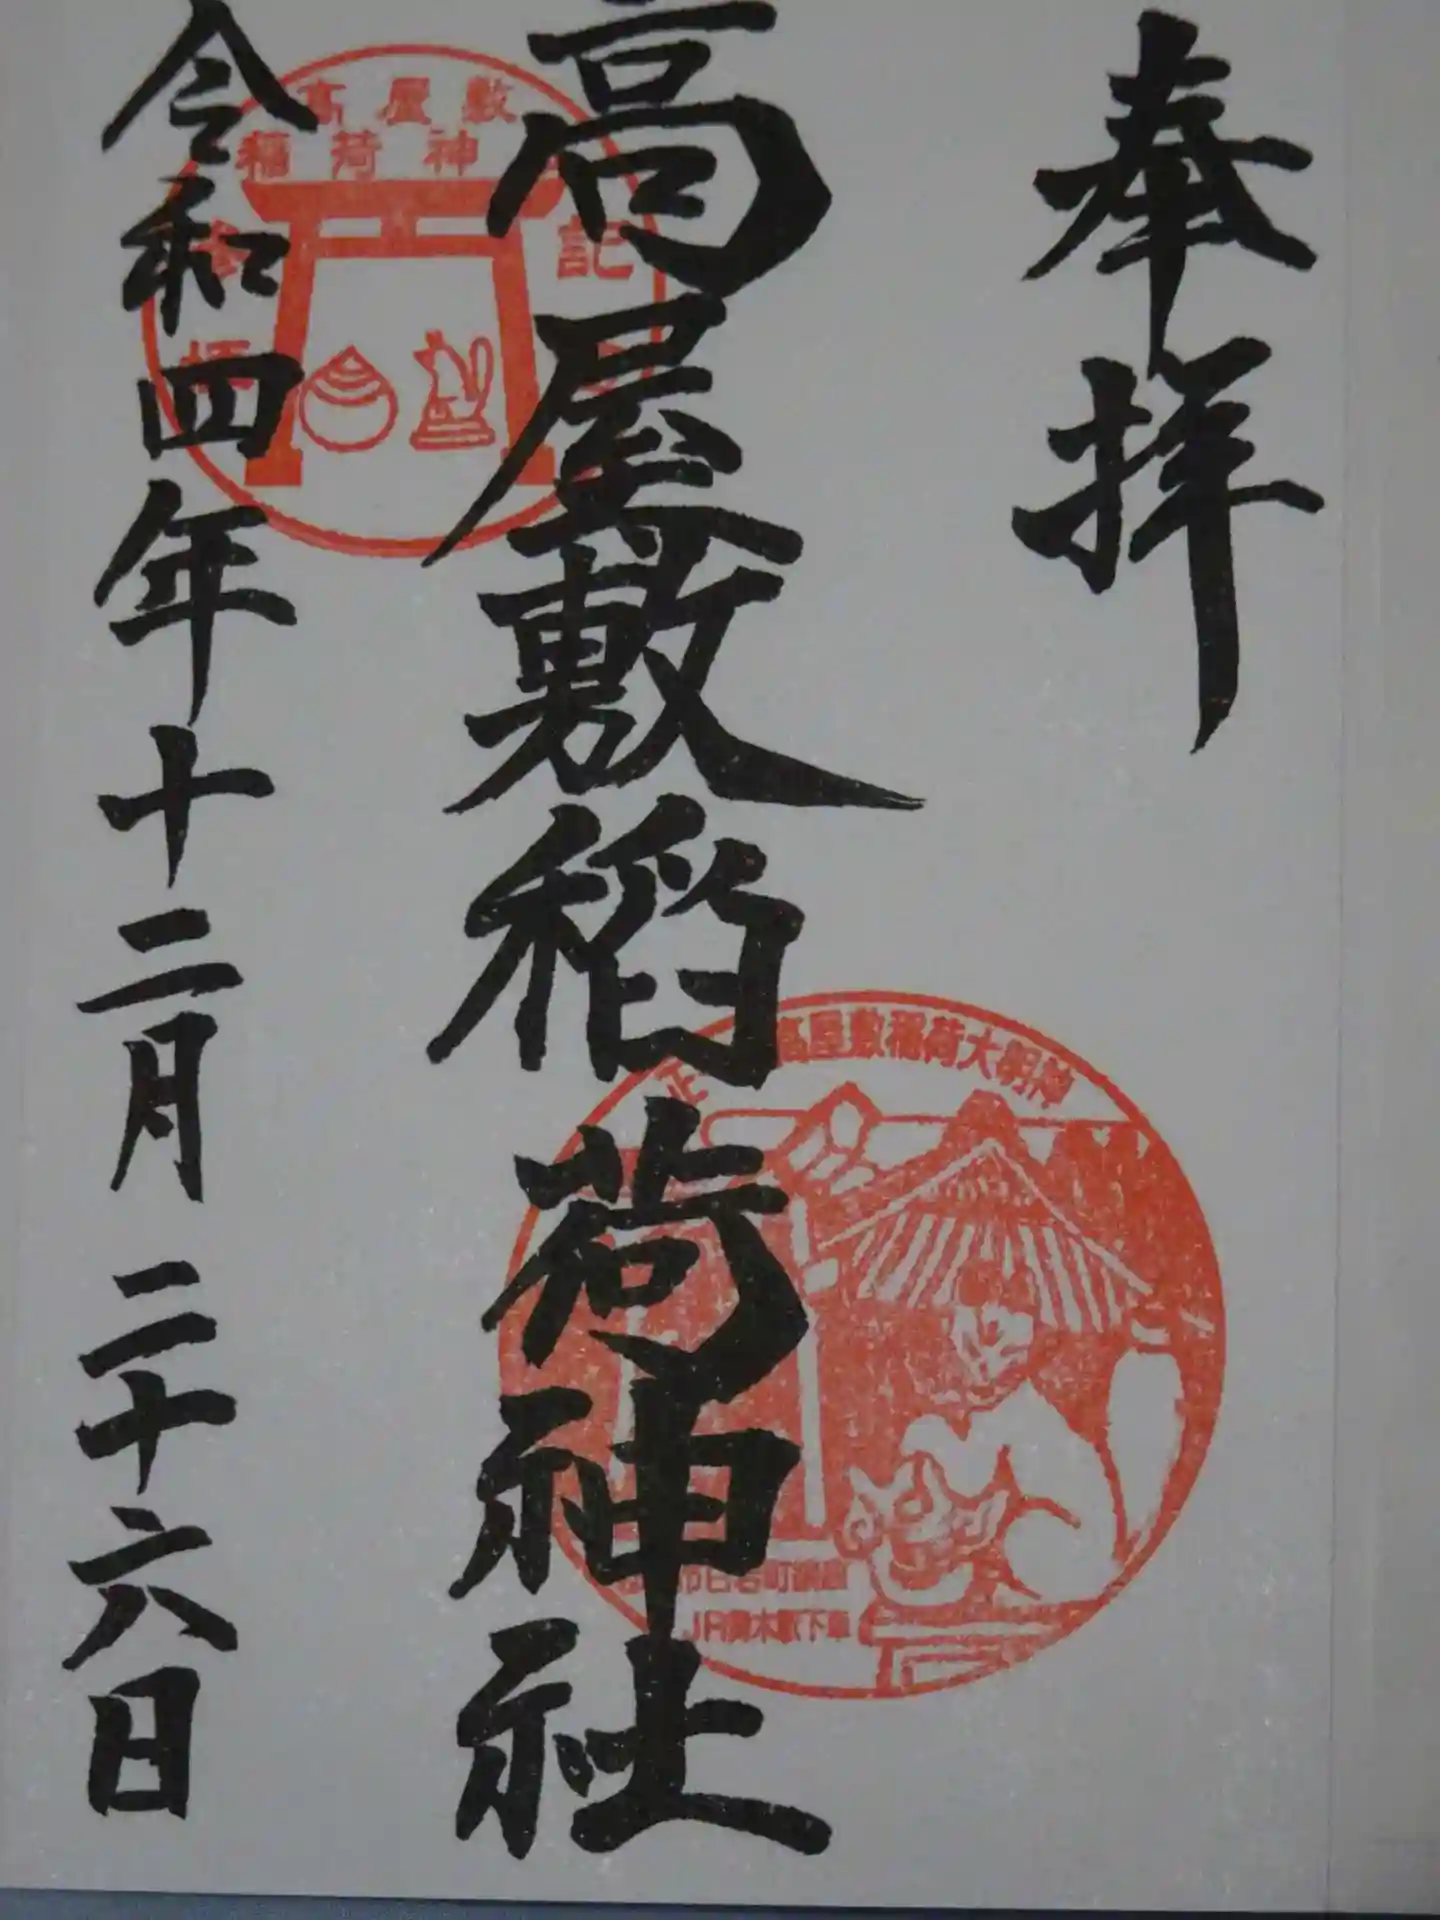 奉拝
高屋敷稲荷神社
令和四年十二月二十六日
高屋敷
稲荷神
記
正
高屋敷稲荷大明神